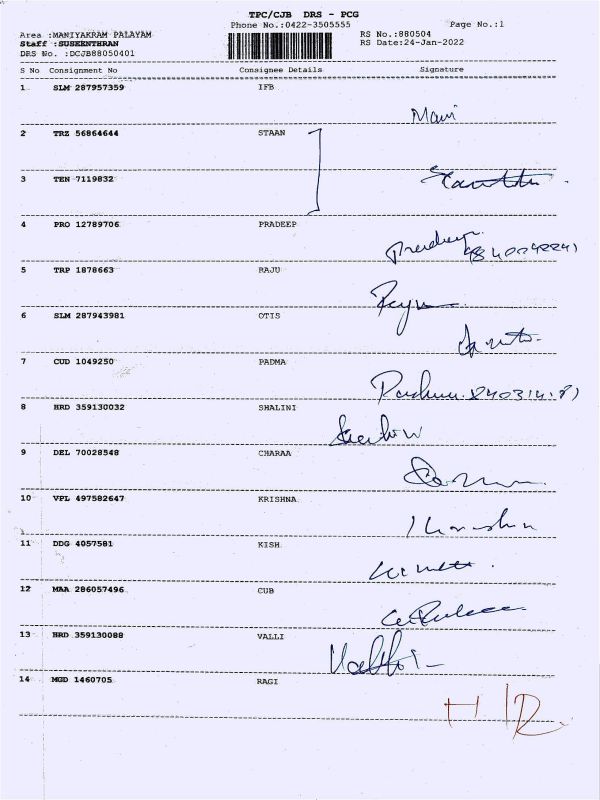 TPC/CJB DRS - PCG
Phone No.:0422-3505555 Page No.:1
Area :MANIYAKRAM PALAYAM RS No.:880504
Staff :SUSKENTHRAN RS Date:24-Jan-2022
DRS No. :DCJB88050401
S No Consignment No Consignee Details Signature
1 SLM 287957359 IFB
Mani
2 TRZ 56864644 STAAN
3 TEN 7119832
4 PRO 12789706 PRADEEP
Pradeep
5 TRP 1878663 RAJU
Raju
6 SLM 287943981 OTIS
7 CUD 1049250 PADMA
8 HRD 359130032 SHALINI
9 DEL 70028548 CHARAA
10 VPL 497582647 KRISHNA
11 DDG 4057581 KISH
12 MAA 286057496 CUB
13 HRD 359130088 VALLI
14 MGD 1460705 RAGI